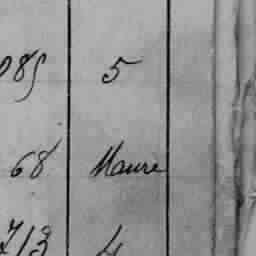 085 5
68 Maure
713 4